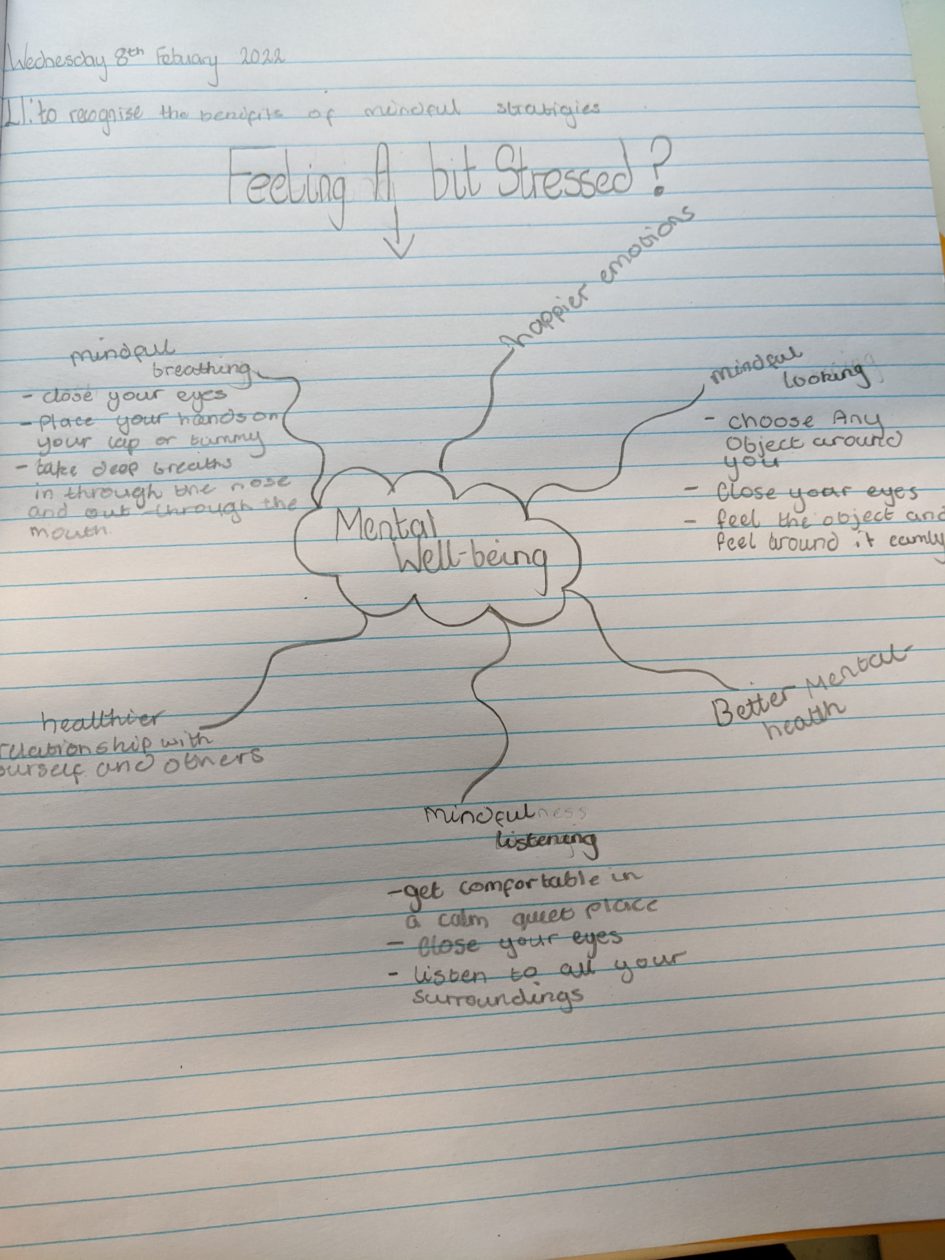 Wednesday 8th Febuary 2022
LI: to recognise the benifits of mindful stratigies
Feeling A bit Stressed?
happier emotions
mindful
breathing
- close your eyes
- Place your hands on
your lap or tummy
- take deep breaths
in through the nose
and out through the
mouth
mindful
looking
- choose Any
Object around
you
- Close your eyes
- feel the object and
feel around it
Mental
Well-being
healthier
relationship with
yourself and others
Better Mental
health
Mindfulness
listening
- get comfortable in
a calm quiet place
- Close your eyes
- listen to all your
surroundings